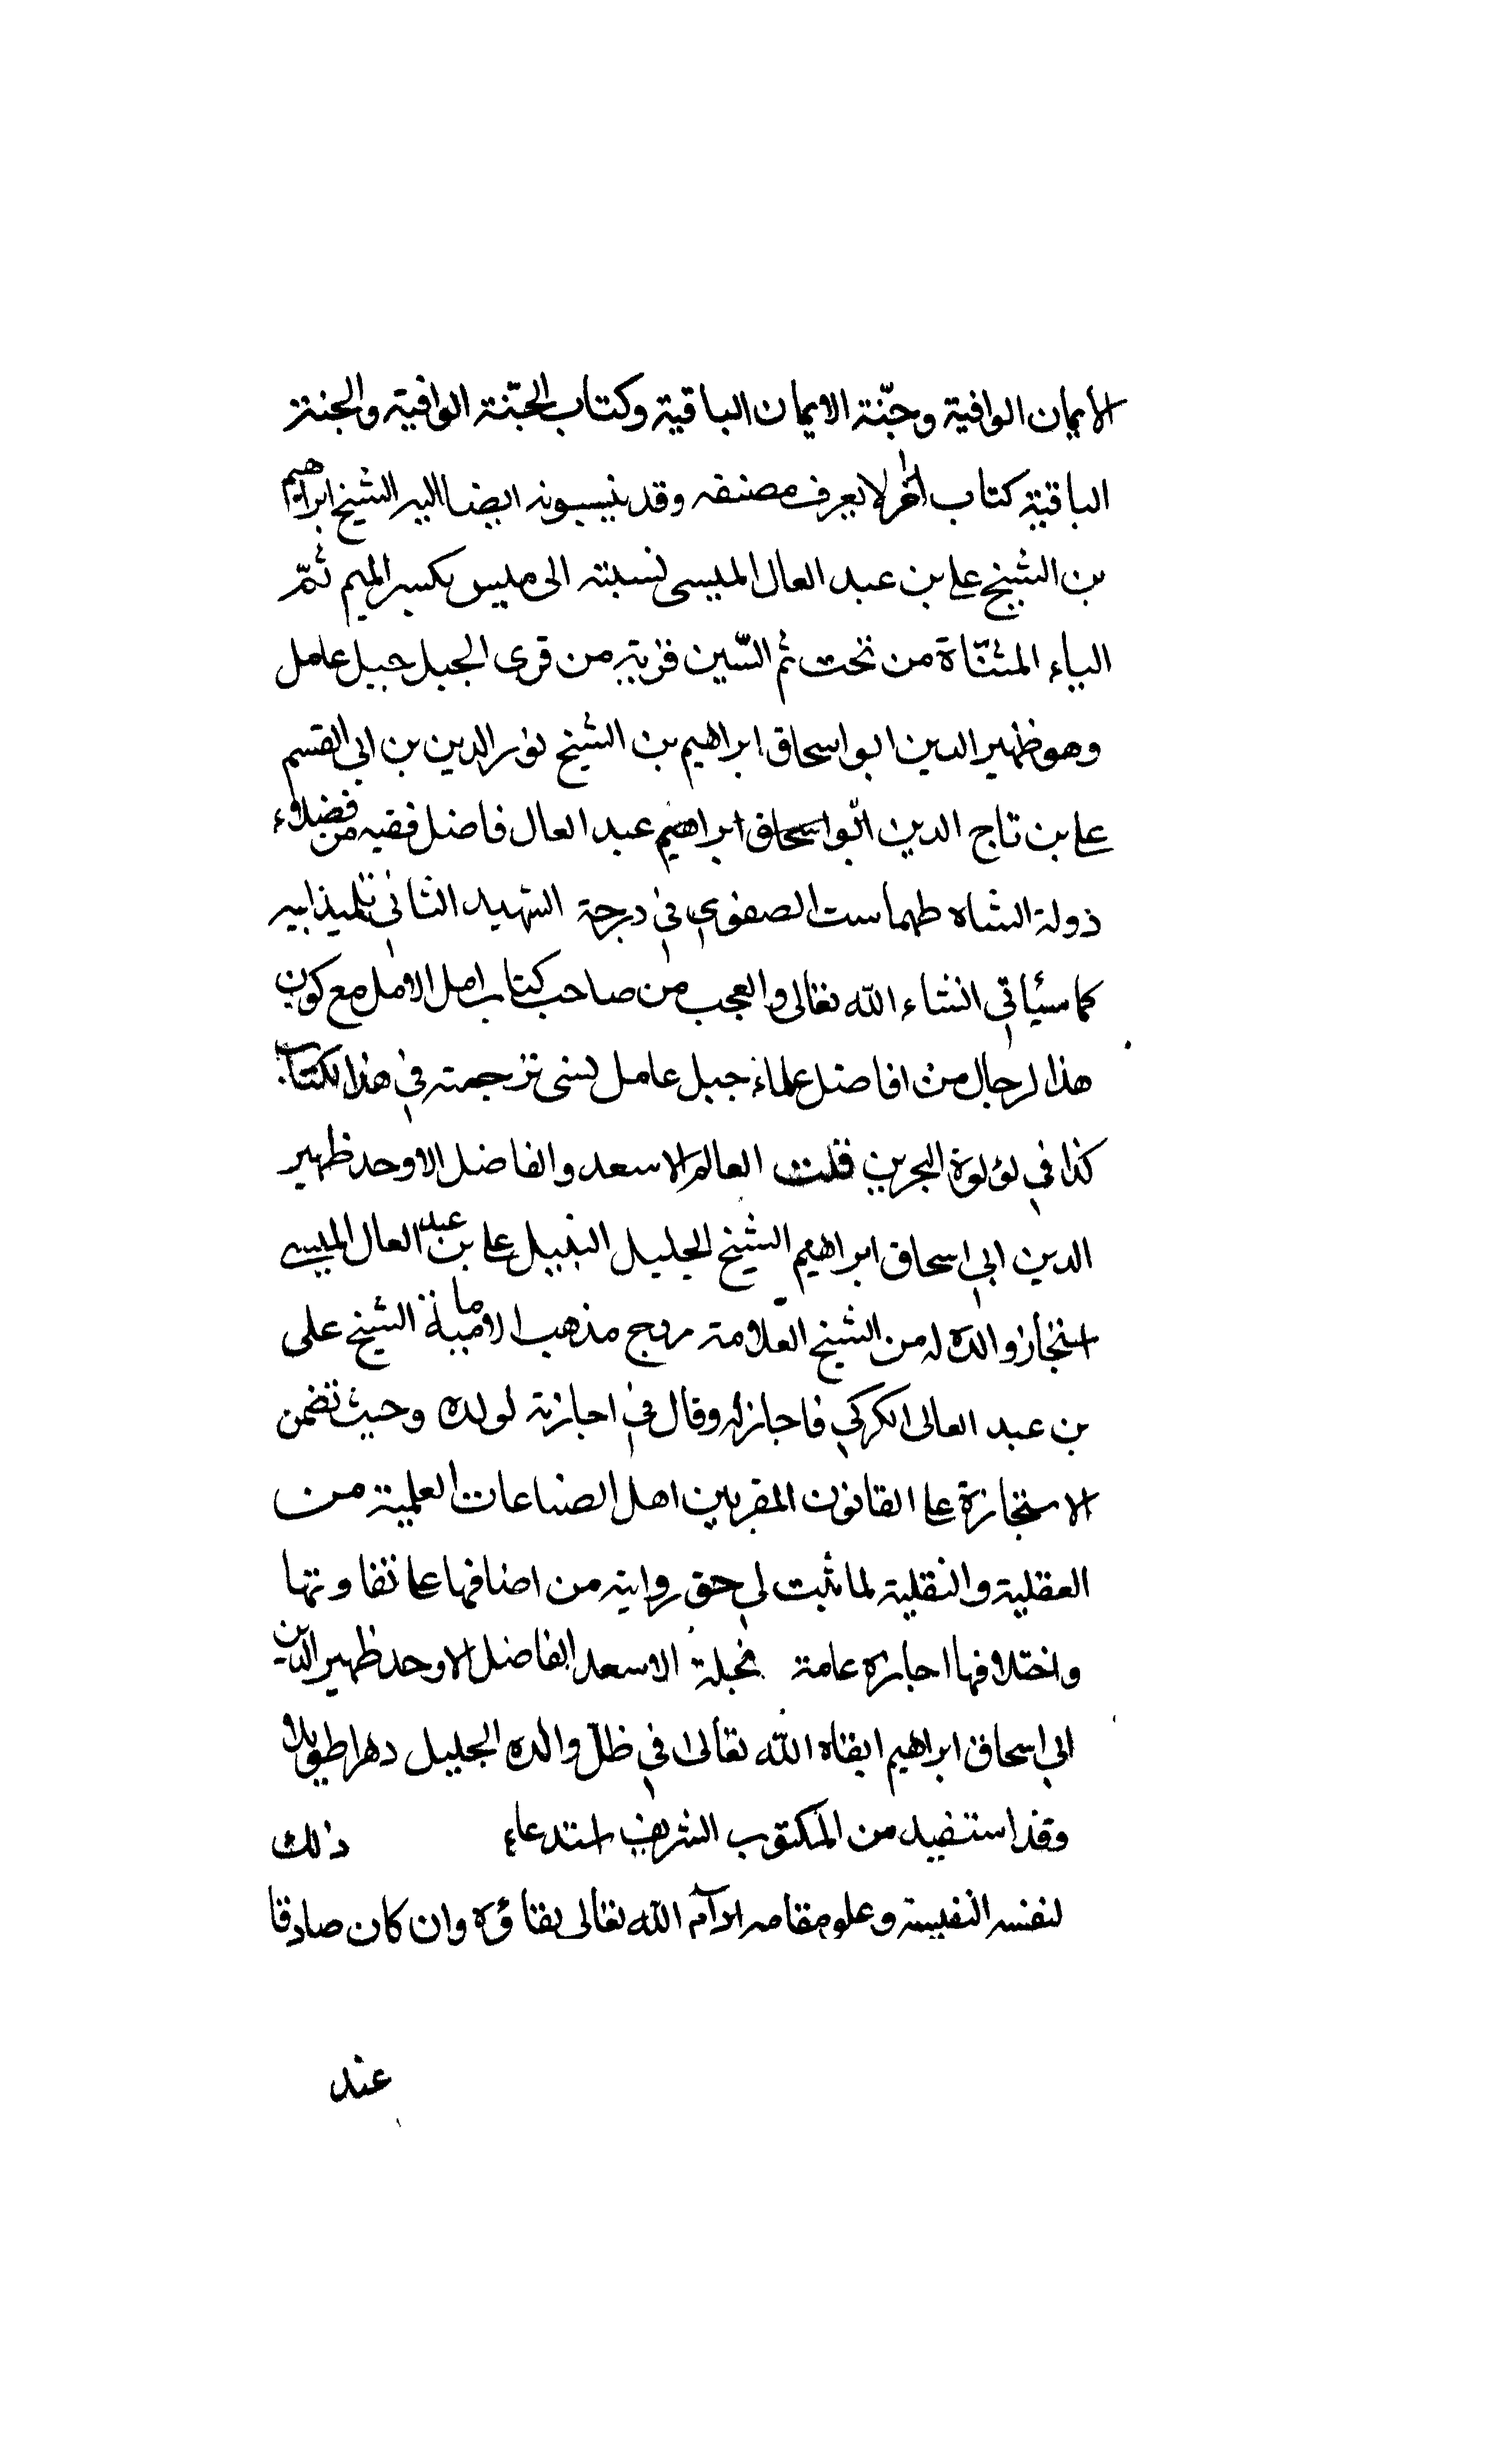 الأيمان الوافية وجنّة الايمان الباقية وكتاب الجنّة الوافية والجنة
الباقية كتاب اخر لا يعرف مصنفه وقد ينسبونه ايضا اليه الشيخ ابراهيم
بن الشيخ علي بن عبد العال الميسى نسبته الى ميس بكسر الميم ثمّ
الياء المثنّاة من تحت ثم السّين قرية من قرى الجبل جبل عامل
وهو ظهير الدين ابو اسحاق ابراهيم بن الشيخ نور الدين بن ابى القسم
علي بن تاج الدين ابو اسحاق ابراهيم عبد العال فاضل فقيه من فضلاء
دولة الشاه طهماست الصفوي في درجة الشهيد الثاني تلميذ ابيه
كما سيأتي انشاء الله تعالى والعجب من صاحب كتاب امل الامل مع كون
هذا الرجال من افاضل علماء جبل عامل نسى ترجمته في هذا الكتاب
كذا في لؤلوة البحرين قلت العالم الاسعد والفاضل الاوحد ظهير
الدين ابي اسحاق ابراهيم الشيخ الجليل النبيل علي بن عبد العال الميسي
استجاز والده له من الشيخ العلّامة مروج مذهب الامامية الشيخ على
بن عبد العالى الكركي فاجاز له وقال في اجازته لولده وحيث تضمن
الاستجازة علي القانون المقرر بين اهل الصناعات العلمية من
العقلية والنقلية لما ثبت لي حق روايته من اصنافها علي تفاوتها
واختلافها اجازة عامة نجله الاسعد الفاضل الاوحد ظهير الدين
ابي اسحاق ابراهيم ابقاه الله تعالى في ظلّ والده الجليل دهرا طويلا
وقد استفيد من المكتوب الشريف استدعاء ذلك
لنفسه النفيسة وعلو مقامه ادآم الله تعالى بقاؤه وان كان صادقا
عند